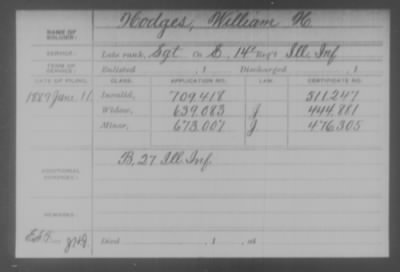 NAME OF SOLDIER: Hodges, William H
SERVICE: Late rank, Sgt Co E, 14" Reg't Ill. Inf
TERM OF SERVICE: Enlisted , 1 Discharged , 1
DATE OF FILING. CLASS. APPLICATION NO. LAW. CERTIFICATE NO.
1889 June 11. Invalid, 709.418 511.247
Widow, 639.083 J 444.881
Minor, 673.007 J 476.305
ADDITIONAL SERVICES: B, 27 Ill. Inf.
REMARKS:
Died , 1 , at